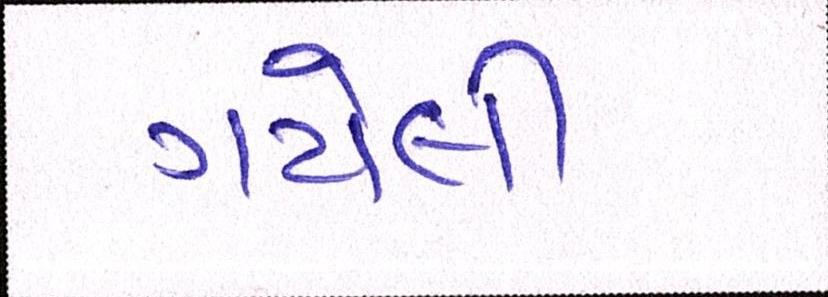 ગયેલી